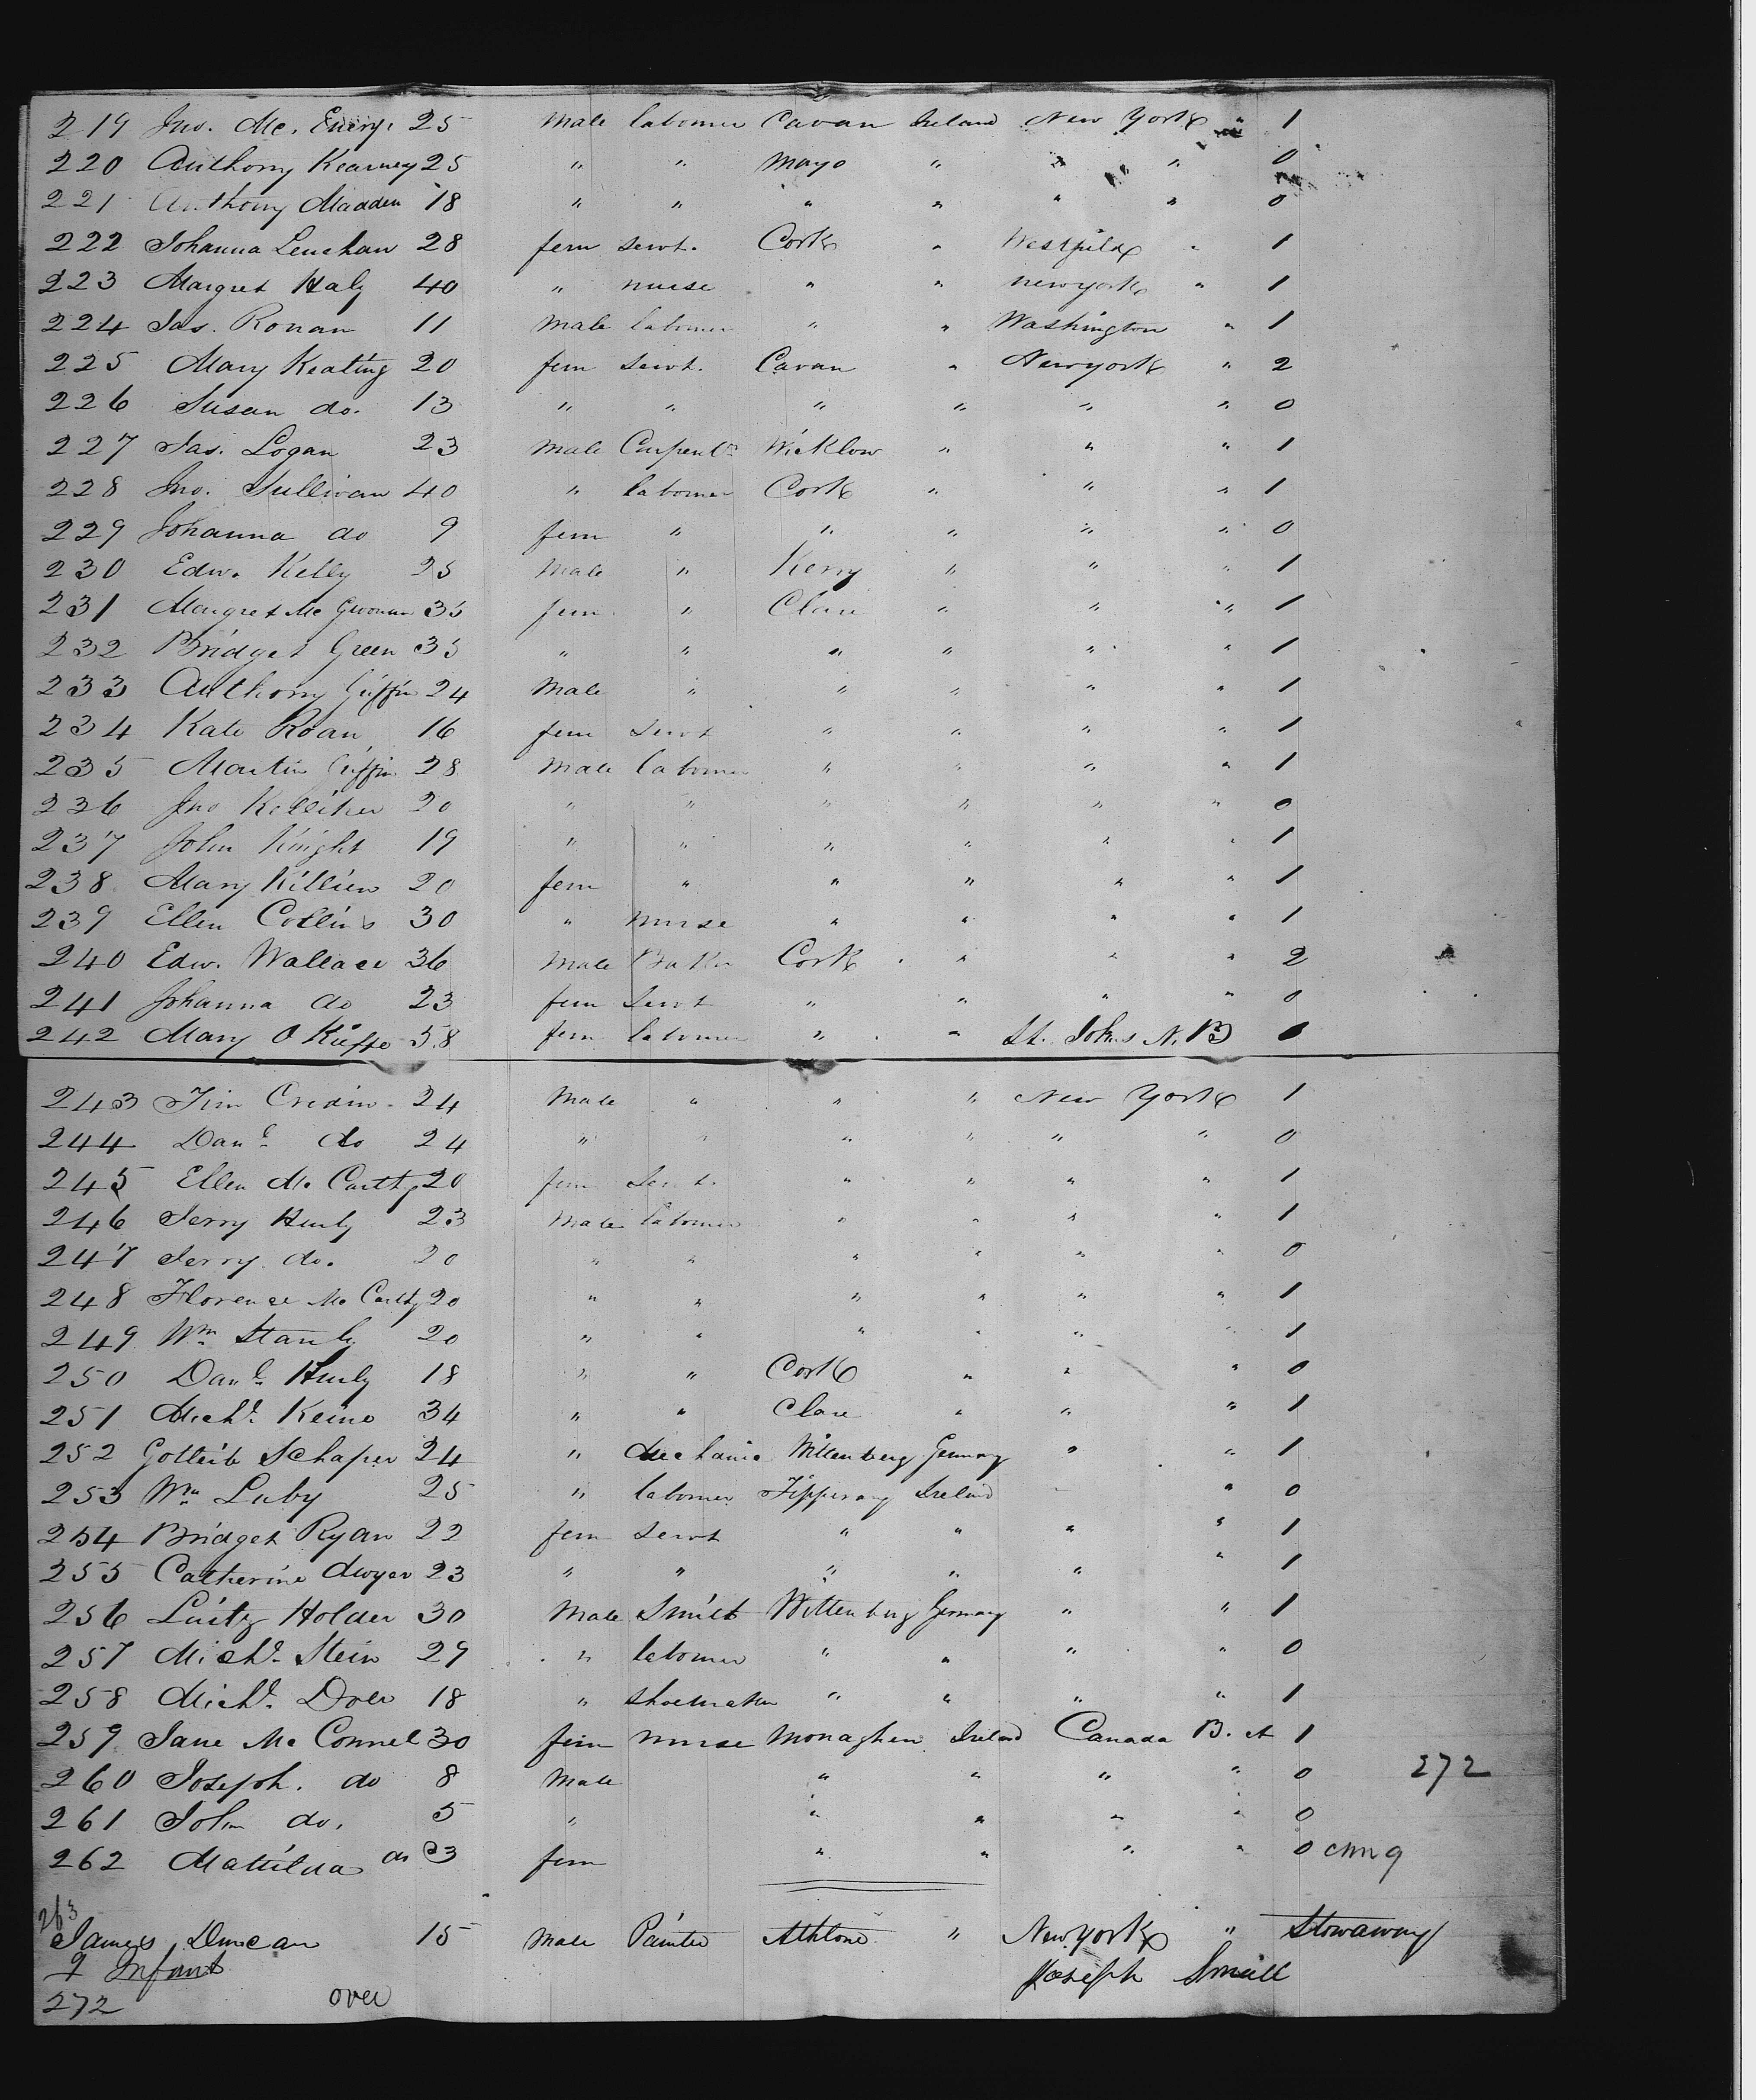 219 Jno. Mc. Enery. 25 male labourer Cavan Ireland New York " 1
220 Anthony Kearney 25 " " Mayo " " " 0
221 Anthony Madden 18 " " " " " " 0
222 Johanna Lenehan 28 fem servt. Cork " Westfield " 1
223 Margret Haly 40 " nurse " " New york " 1
224 Jas. Ronan 11 male labourer " " Washington " 1
225 Mary Keating 20 fem servt. Cavan " New york " 2
226 Susan do. 13 " " " " " " 0
227 Jas. Logan 23 male Carpentr Wicklow " " " 1
228 Jno. Sullivan 40 " labourer Cork " " " 1
229 Johanna do 9 fem " " " " " 0
230 Edw. Kelly 25 male " Kerry " " " 1
231 Margret Mc 35 fem " Clare " " " 1
232 Bridget Green 35 " " " " " " 1
233 Anthony Griffin 24 male " " " " " 1
234 Kate Roan 16 fem servt " " " " 1
235 Martin Griffin 28 male labourer " " " " 1
236 Jno Kelliher 20 " " " " " " 0
237 John Knight 19 " " " " " " 1
238 Mary Killien 20 fem " " " " " 1
239 Ellen Collins 30 " nurse " " " " 1
240 Edw. Wallace 36 male Baker Cork " " " 2
241 Johanna do 23 fem servt " " " " 0
242 Mary O Kieffe 58 fem labourer " " St. Johns N. B
243 Tim Credin 24 male " " " New York 1
244 Danl do 24 " " " " " " 0
245 Ellen Mc Carthy 20 fem servt. " " " " 1
246 Jerry Hurly 23 male labourer " " " " 1
247 Jerry do. 20 " " " " " " 0
248 Florence Mc Carthy 20 " " " " " " 1
249 Wm Stanly 20 " " " " " " 1
250 Danl Hurly 18 " " Cork " " " 0
251 Michl. Keine 34 " " Clare " " " 1
252 Gotleib Schaper 24 " Mechanic Wittenberg Germany " " 1
253 Wm Luby 25 " labourer Tipperary Ireland " " 0
254 Bridget Ryan 22 fem servt " " " " 1
255 Catherine Dwyer 23 " " " " " " 1
256 Luitz Holder 30 male Smith Wittenburg Germany " " 1
257 Michl. Stein 29 " labourer " " " " 0
258 Michl. Doer 18 " Shoemaker " " " " 1
259 Jane Mc Connel 30 fem nurse Monaghen Ireland Canada B. A 1
260 Joseph. do 8 male " " " " 0 272
261 John do. 5 " " " " " 0
262 Matilda do 3 fem " " " " 0
263
James Duncan 15 male Painter Athlone " New york " Stowaway
9 Infants Joseph Small
272 over